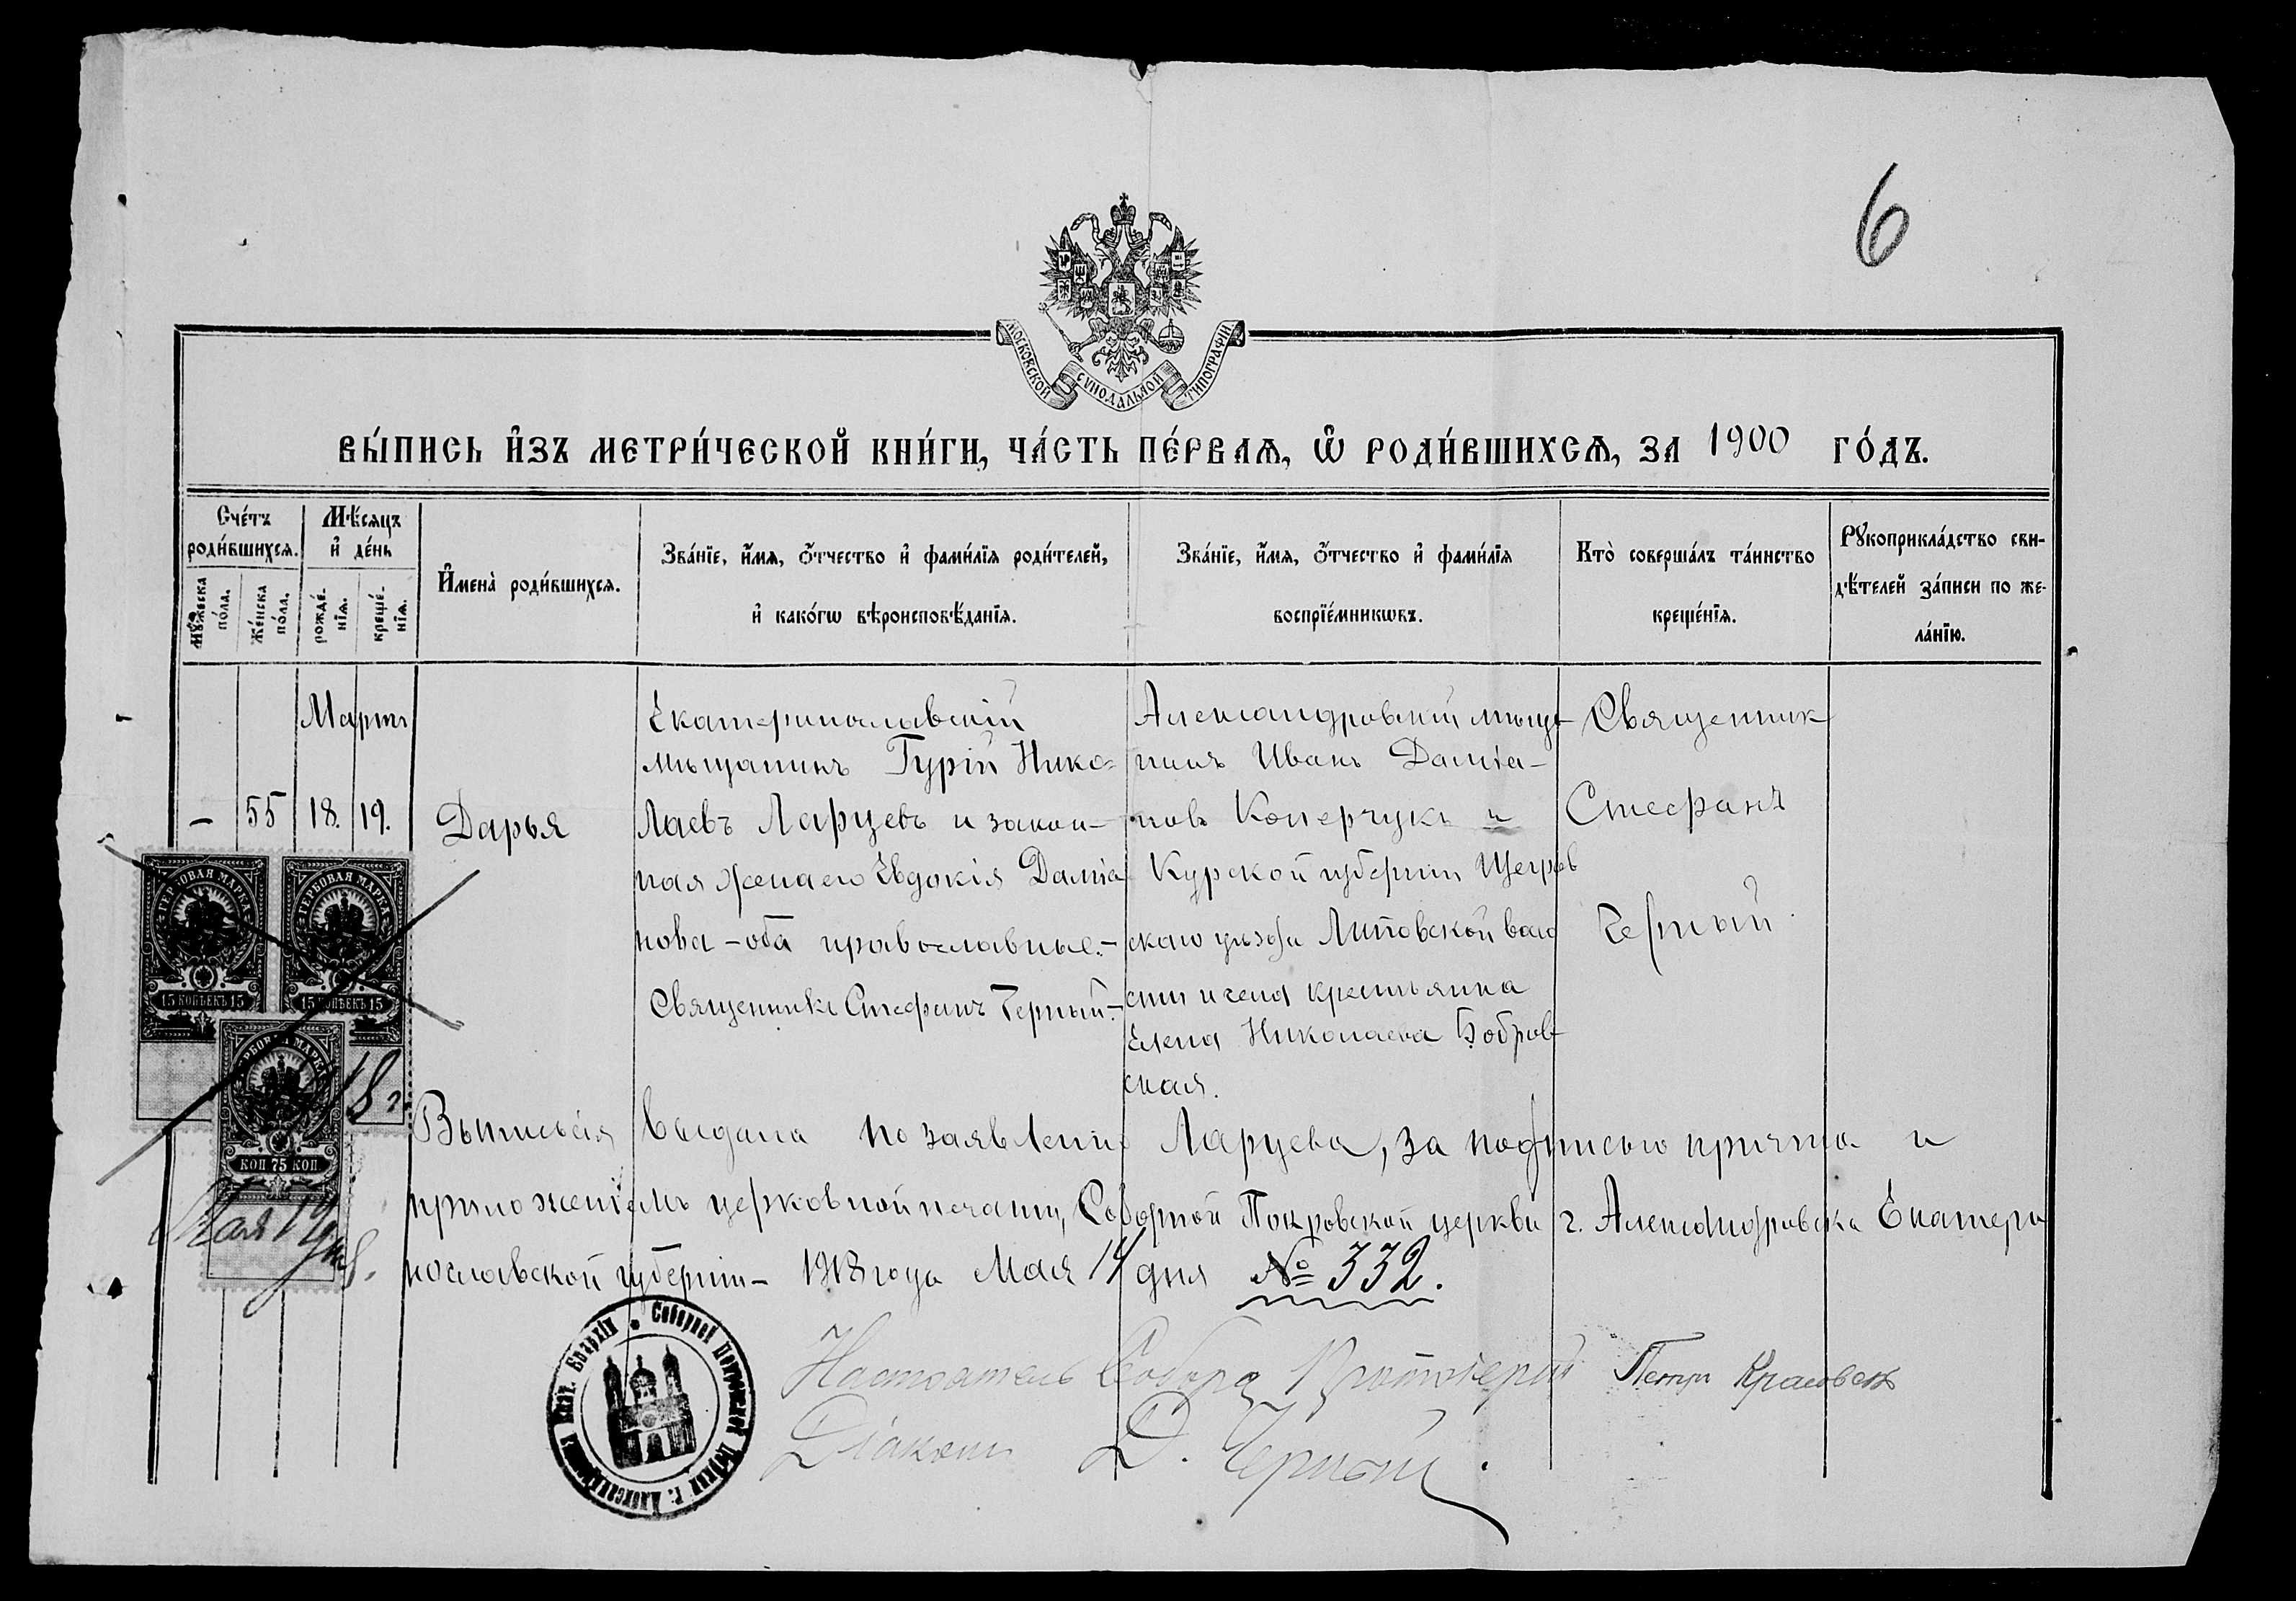 6
МОСКОВСКОЙ СѴНОДАЛЬНОЙ ТИПОГРАФІИ
ВЫ́ПИСЬ И҆ЗЪ МЕТРИ́ЧЕСКОЙ КНИ́ГИ, ЧА́СТЬ ПЕ́РВАѦ, Ѽ РОДИ́ВШИХСѦ, ЗА 1900 ГО́ДЪ.
Сче́тъ роди́вшихсѧ.
Мꙋ́жеска по́ла.
Же́нска по́ла.
Мѣ́сѧцъ и҆ де́нь
рожде́нїѧ.
креще́нїѧ.
И҆мена̀ роди́вшихсѧ.
Зва́нїе, и҆́мѧ, ѻ҆́тчество и҆ фами́лїѧ роди́телей,
и҆ како́гѡ вѣроисповѣ́данїѧ.
Зва́нїе, и҆́мѧ, ѻ҆́тчество и҆ фами́лїѧ
воспрїе́мникѡвъ.
Кто̀ соверша́лъ та́инство
креще́нїѧ.
Рꙋкоприкла́дство сви-
дѣ́телей за́писи по же-
ла́нїю.
Мартъ
–
55
18.
19.
Дарья
Екатеринославскій
мѣщанинъ Гурій Нико=
лаевъ Ларцевъ и закон–
ная жена его Евдокія Даміа
нова – оба православные.–
Священникъ Стефанъ Черный.–
Александровскій мѣща–
нинъ Иванъ Даміа–
новъ Коперчукъ и
Курской губерніи Щегров
скаго уѣзда Липовской воло
сти и села крестьянка
Елена Николаева Бобров–
ская.
Священник
Стефанъ
Черный
ГЕРБОВАЯ МАРКА
15 КОПѢЕКЪ 15
ГЕРБОВАЯ МАРКА
15 КОПѢЕКЪ 15
ГЕРБОВАЯ МАРКА
КОП 75 КОП
18 г.
Мая 14 дня
Выпись сія выдана по заявленію Ларцева, за подписью причта и
приложеніемъ церковной печати, Соборной Покровской церкви г. Александровска Екатери
нославской губерніи – 1918 года Мая 14 дня № 332.
Соборной Покровской Церкви г. Александровска Екат. Епархіи
Настоятель Собора Протоіерей Петръ
Діаконъ Д. Черный.